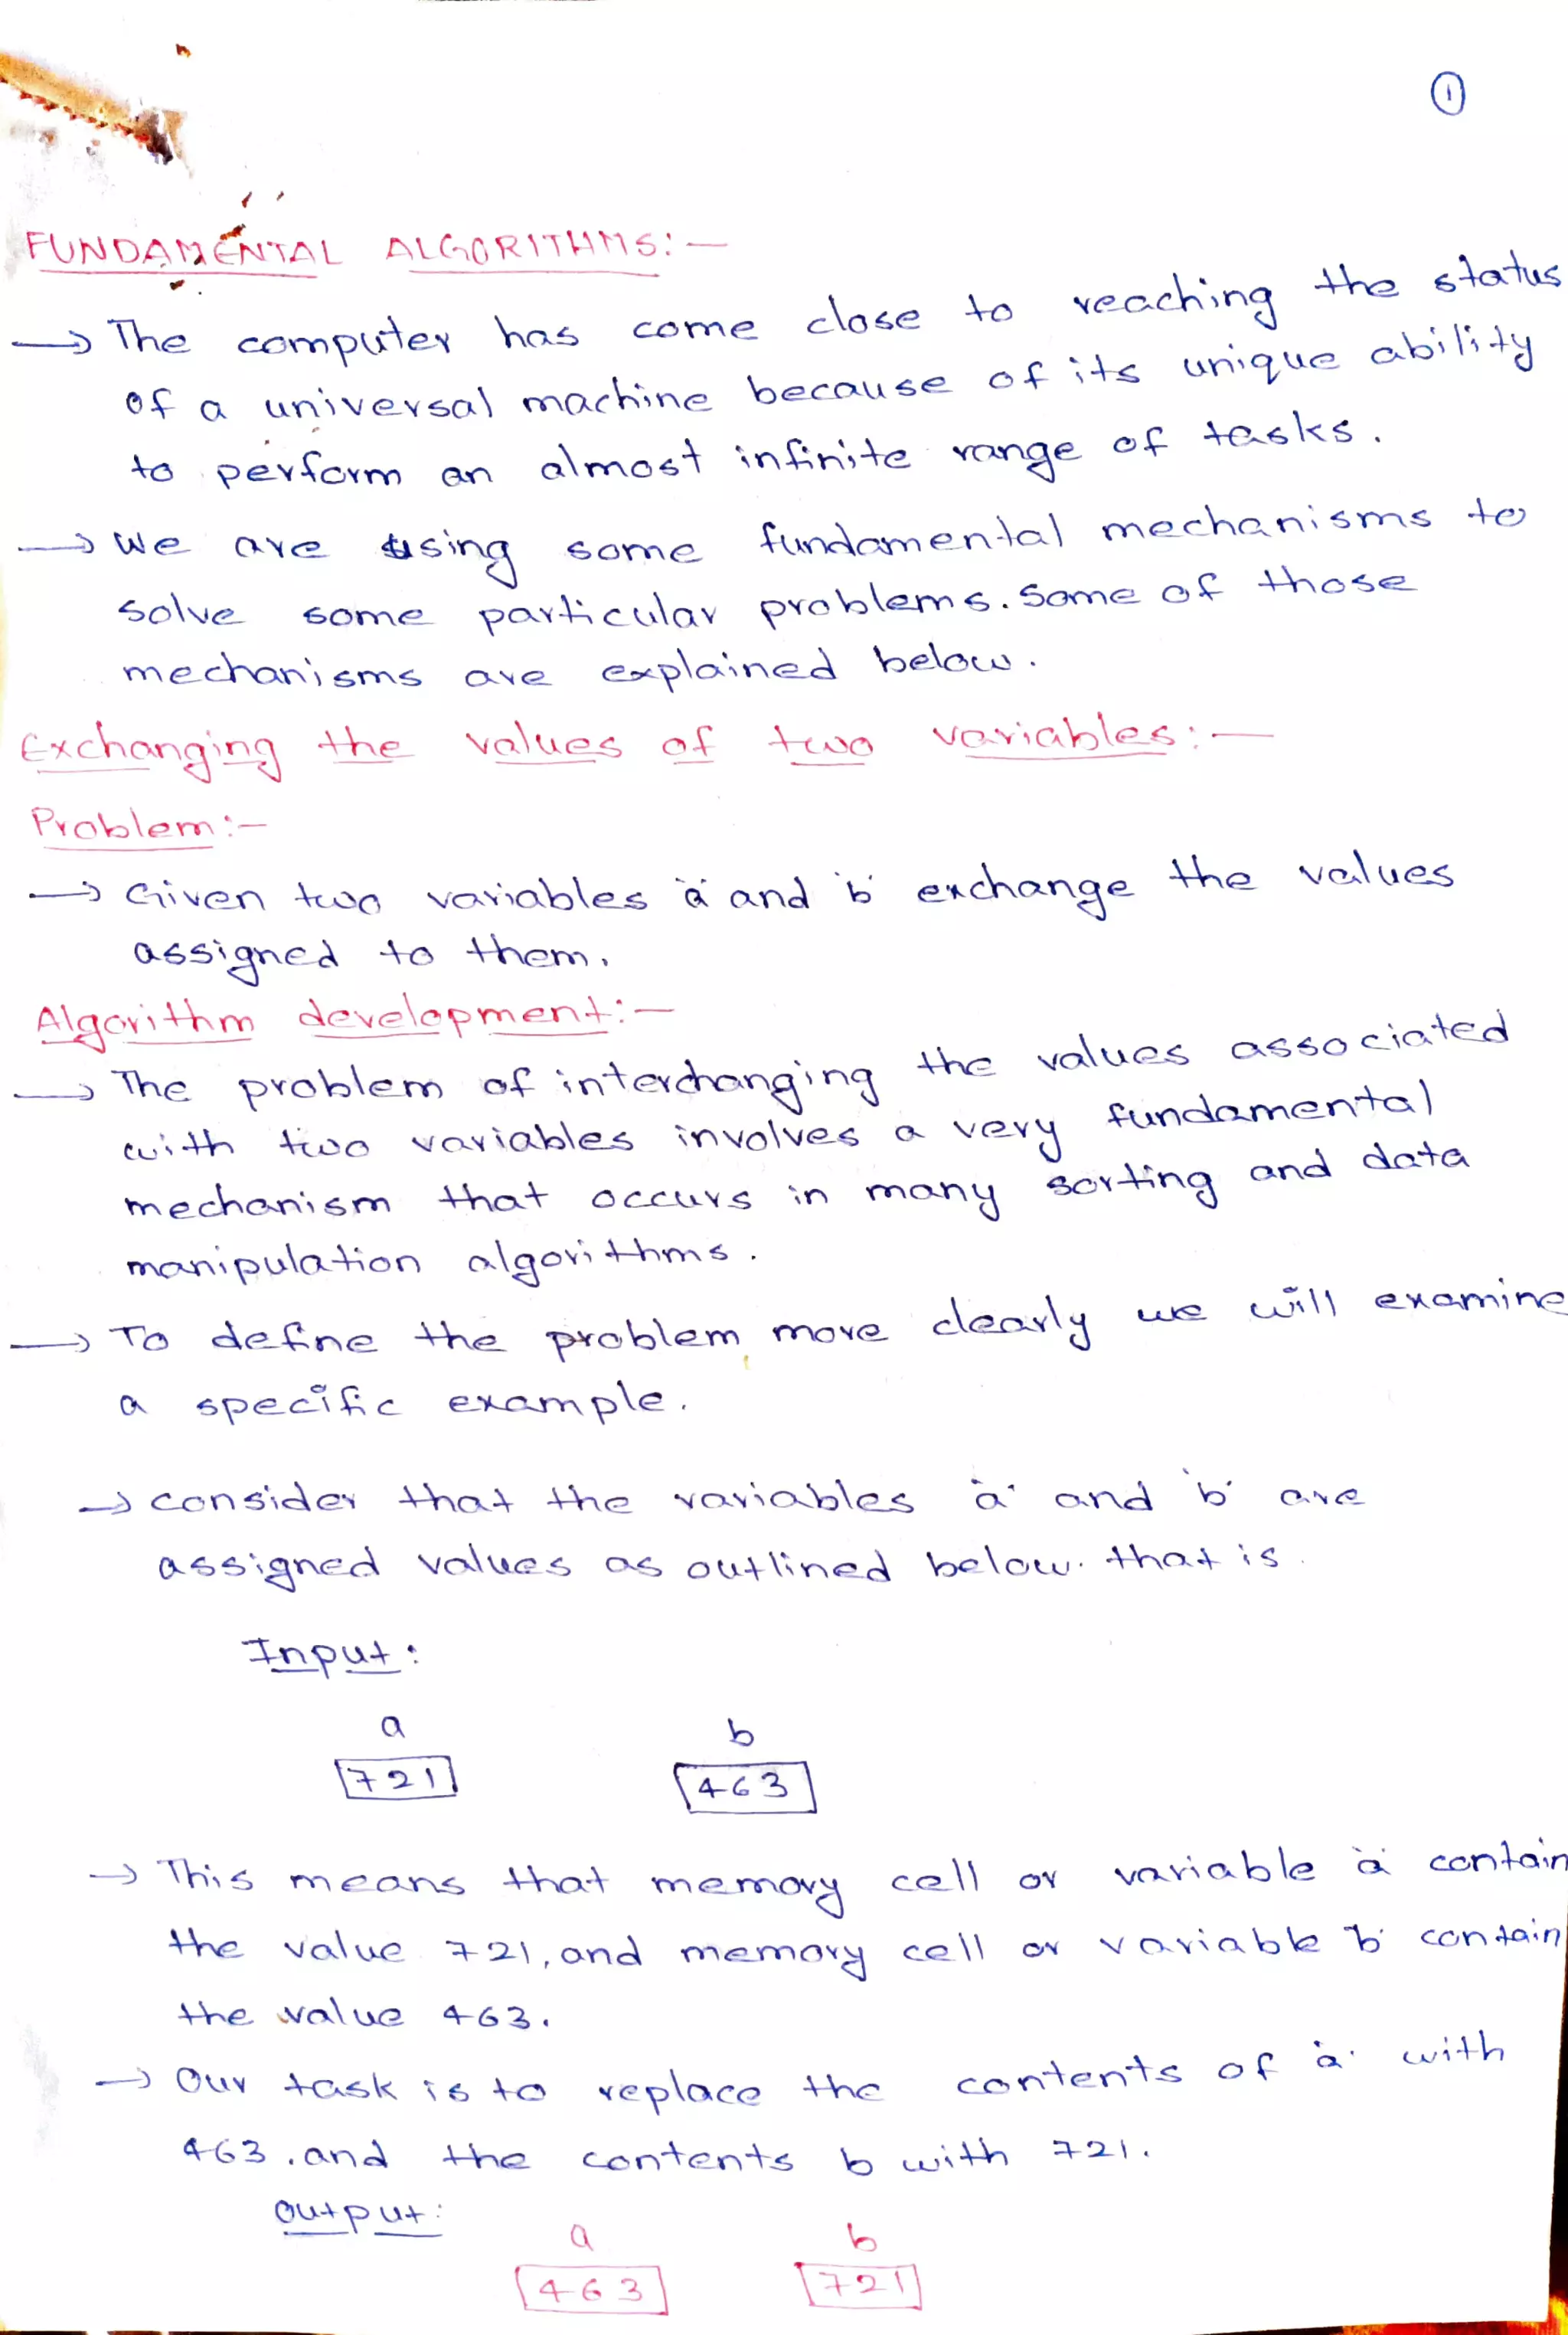 1
FUNDAMENTAL ALGORITHMS:-
→ The computer has come close to reaching the status
of a universal machine because of its unique ability
to perform an almost infinite range of tasks.
→ We are using some fundamental mechanisms to
solve some particular problems. Some of those
mechanisms are explained below.
Exchanging the values of two variables:-
Problem:-
→ Given two variables 'a' and 'b' exchange the values
assigned to them.
Algorithm development:-
→ The problem of interchanging the values associated
with two variables involves a very fundamental
mechanism that occurs in many sorting and data
manipulation algorithms.
→ To define the problem more clearly we will examine
a specific example.
→ consider that the variables 'a' and 'b' are
assigned values as outlined below. that is
Input:
a b
721 463
→ This means that memory cell or variable 'a' contain
the value 721, and memory cell or variable 'b' contain
the value 463.
→ Our task is to replace the contents of 'a' with
463, and the contents b with 721.
output:
a b
463 721